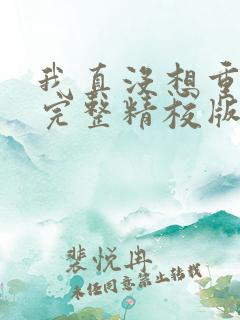 我真没想重
完整精校版
裴悦冉
未经同意禁止转载